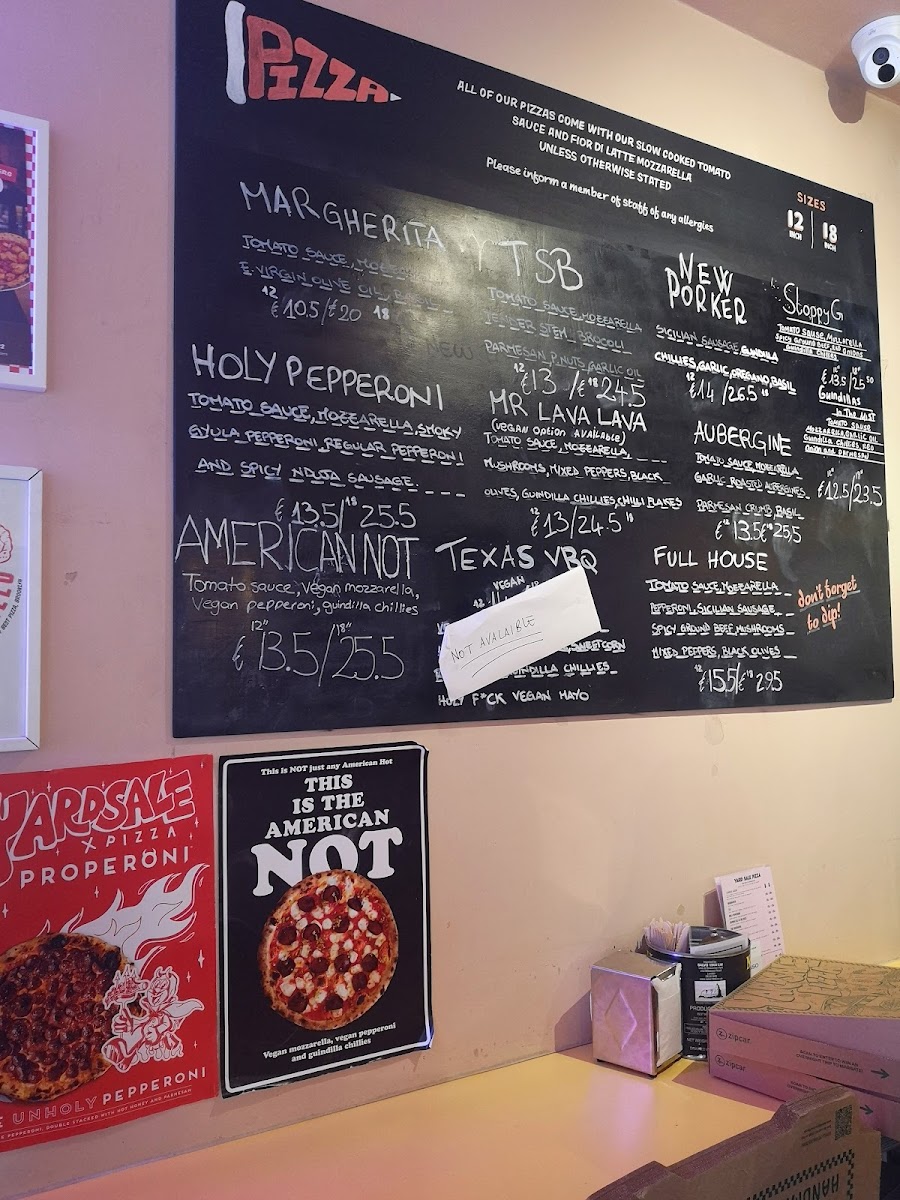 PIZZA
ALL OF OUR PIZZAS COME WITH OUR SLOW COOKED TOMATO
SAUCE AND FIOR DI LATTE MOZZARELLA
UNLESS OTHERWISE STATED
Please inform a member of staff of any allergies
SIZES
12 INCH | 18 INCH
MARGHERITA
TOMATO SAUCE,
E. VIRGIN OLIVE OIL, BASIL
12 £10.5/£20 18
HOLY PEPPERONI
TOMATO SAUCE, MOZZARELLA, SMOKY
GYULA PEPPERONI, REGULAR PEPPERONI
AND SPICY NDUJA SAUSAGE
£13.5/18 25.5
AMERICAN NOT
Tomato sauce, Vegan mozzarella,
Vegan pepperoni, guindilla chillies
12" 18"
£13.5/25.5
TSB
TOMATO SAUCE, MOZZARELLA
TENDER STEM BROCOLI
PARMESAN P.NUTS, GARLIC OIL
12 £13/£18 24.5
MR LAVA LAVA
(VEGAN OPTION AVAILABLE)
TOMATO SAUCE, MOZZARELLA,
MUSHROOMS, MIXED PEPPERS, BLACK
OLIVES, GUINDILLA CHILLIES, CHILI FLAKES
12 £13/24.5 18
TEXAS VBQ
VEGAN
NOT AVALAIBLE
SWEETCORN
GUINDILLA CHILLIES
HOLY F*CK VEGAN MAYO
NEW
PORKER
SICILIAN SAUSAGE, GUINDILLA
CHILLIES, GARLIC, OREGANO, BASIL
12 £14/26.5 18
AUBERGINE
TOMATO SAUCE, MOZZARELLA
GARLIC ROASTED AUBERGINES
PARMESAN CRUMB, BASIL
£12 13.5 £18 25.5
FULL HOUSE
TOMATO SAUCE, MOZZARELLA
PEPPERONI, SICILIAN SAUSAGE
SPICY GROUND BEEF, MUSHROOMS
MIXED PEPPERS, BLACK OLIVES
12 £15.5/£18 29.5
Stoppy G
TOMATO SAUCE, MOZZARELLA
SPICY GROUND BEEF, RED ONIONS
GUINDILLA CHILLIES
£13.5/25.50
Guindillas
In The MIST
TOMATO SAUSE
MOZZARELLA, GARLIC OIL
Guindilla chillies, RED
Onion and PARMESAN
£12.5/23.5
don't forget
to dip!
YARDSALE
X PIZZA
PROPERÖNI
UNHOLY PEPPERONI
PEPPERONI, DOUBLE STACKED WITH HOT HONEY AND PARMESAN
This is NOT just any American Hot
THIS
IS THE
AMERICAN
NOT
Vegan mozzarella, vegan pepperoni
and guindilla chillies
YARD SALE PIZZA
zipcar
zipcar